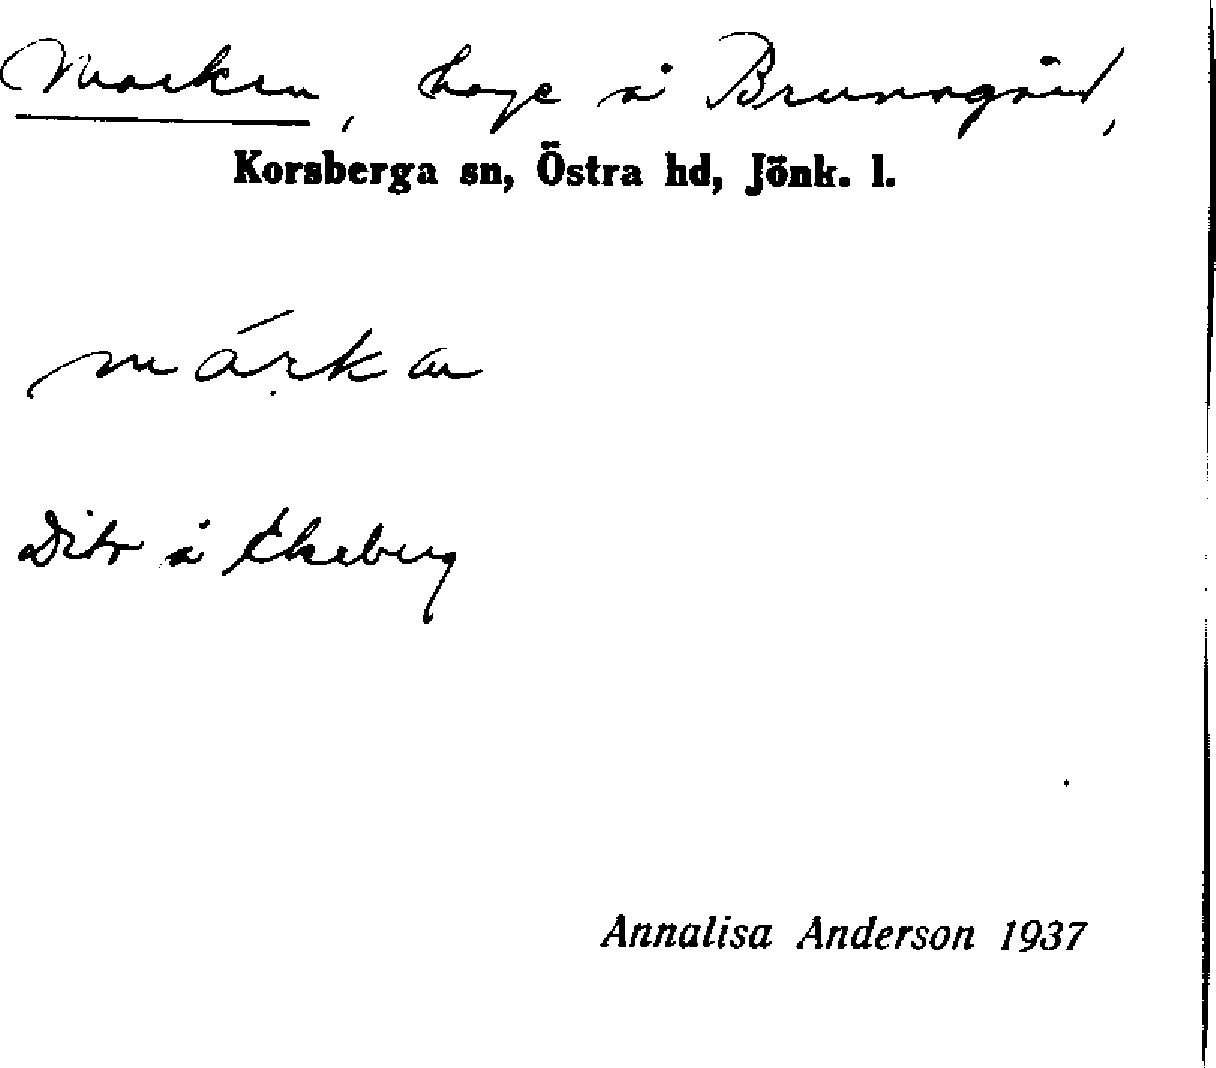 Marken, hage å Brunnsgård,
Korsberga sn, Östra hd, Jönk. l.
márkan
Dito å Ekeberg
Annalisa Anderson 1937